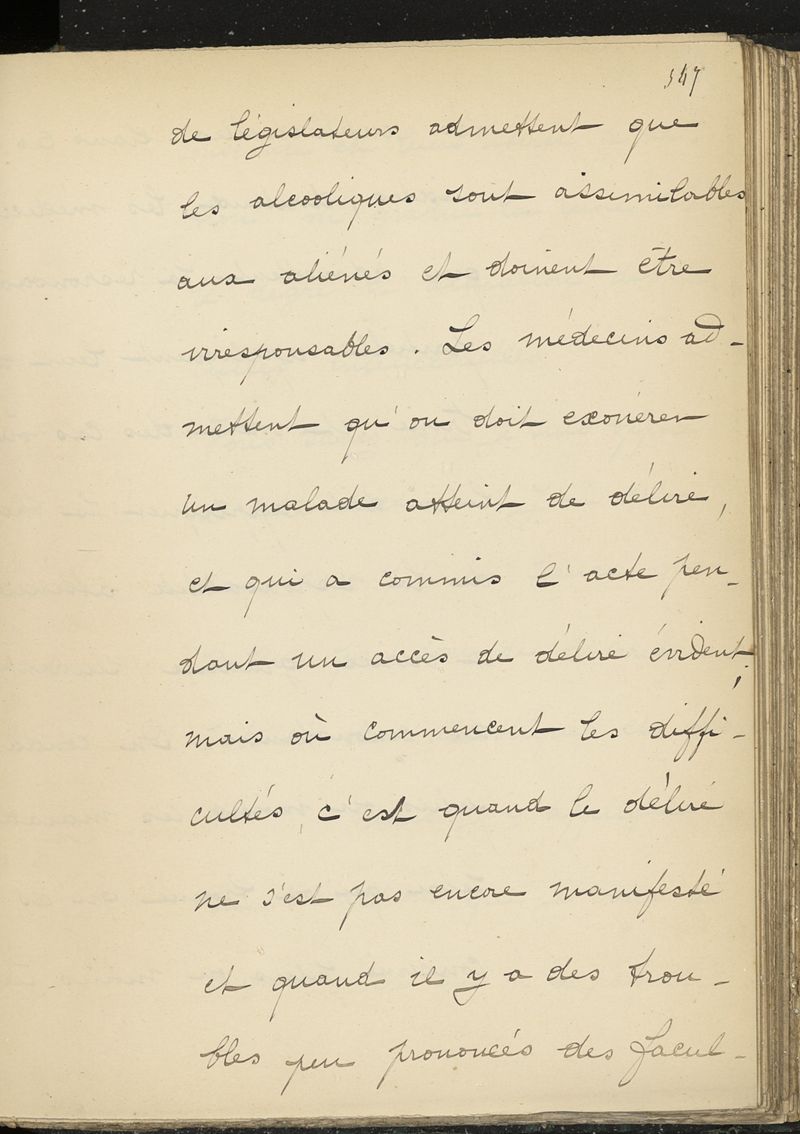 547
de législateurs admettent que
les alcooliques sont assimilables
aux aliénés et doivent être
irresponsables. Les médecins ad-
mettent qu'on doit exonérer
un malade atteint de délire,
et qui a commis l'acte pen-
dant un accès de délire évident,
mais où commencent les diffi-
cultés, c'est quand le délire
ne s'est pas encore manifesté
et quand il y a des trou-
bles peu prononcés des facul-